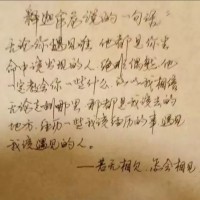 释迦牟尼说的一句话:
无论你遇见谁 他都是你生
命中该出现的人 绝非偶然 他
一定教会你一些什么 所以我相信
无论走到哪里 那都是我该去的
地方 经历一些我该经历的事 遇见
我该遇见的人。
——若无相欠 怎会相见